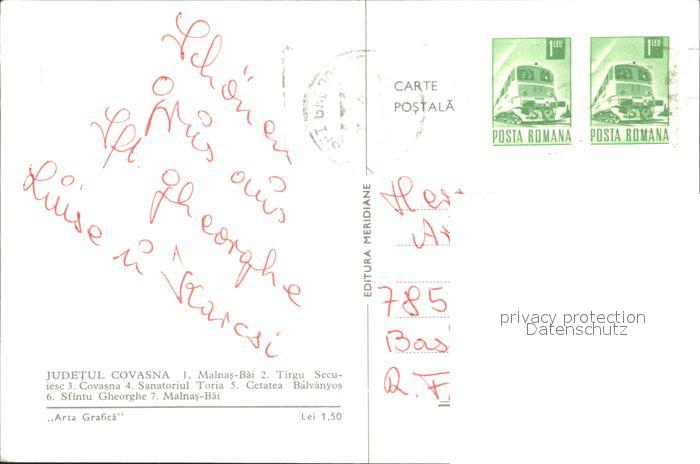 Schönen
Grüs aus
Sf. Gheorghe
Luise u Karcsi
JUDEȚUL COVASNA 1. Malnaș-Băi 2. Tîrgu Secu-
iesc 3. Covasna 4. Sanatoriul Toria 5. Cetatea Bálványos
6. Sfîntu Gheorghe 7. Malnaș-Băi
„Arta Grafică” Lei 1,50
EDITURA MERIDIANE
CARTE
POȘTALĂ
1 LEU
POSTA ROMANA
1 LEU
POSTA ROMANA
785
privacy protection
Datenschutz